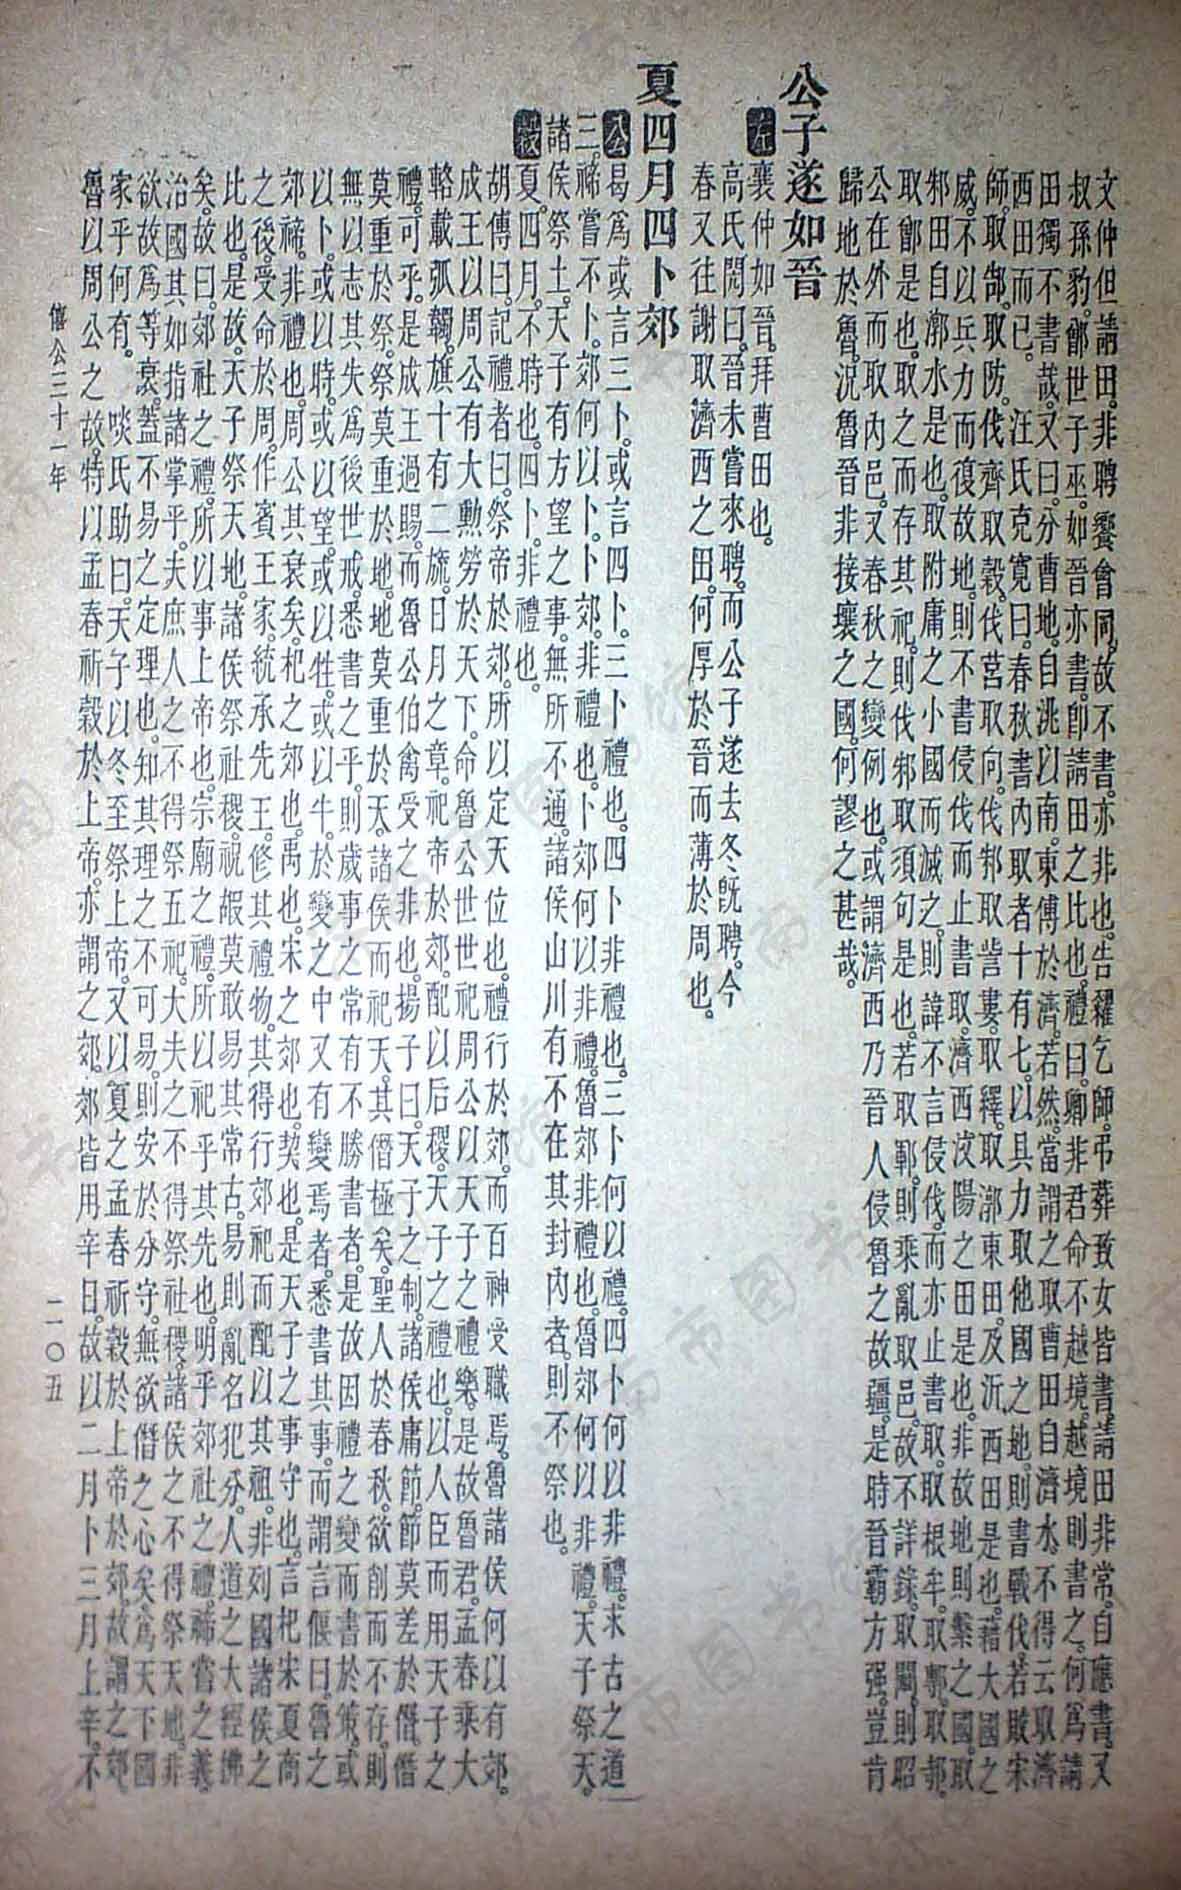 文仲但請田。非聘饗會同。故不書。亦非也。告糴乞師。弔葬致女皆書。請田非常。自應書。又
叔孫豹。鄫世子巫。如晉亦書。卽請田之比也。禮曰。卿非君命不越境。越境則書之。何爲請
田獨不書哉。又曰。分曹地。自洮以南。東傅於濟。若然。當謂之取曹田自濟水。不得云取濟
西田而已。　汪氏克寬曰。春秋書內取者十有七。以其力取他國之地。則書戰伐。若敗宋
師。取郜。取防。伐齊取穀。伐莒取向。伐邾取訾婁。取繹。取漷東田。及沂西田是也。藉大國之
威。不以兵力而復故地。則不書侵伐而止書取。濟西汶陽之田是也。非故地則繫之國。取
邾田自漷水是也。取附庸之小國而滅之。則諱不言侵伐。而亦止書取。取根牟。取鄟。取邿。
取鄫是也。取之而存其祀。則伐邾取須句是也。若取鄆。則乘亂取邑。故不詳錄。取闞。則昭
公在外而取內邑。又春秋之變例也。或謂濟西乃晉人侵魯之故疆。是時晉霸方强。豈肯
歸地於魯。況魯晉非接壤之國。何謬之甚哉。
公子遂如晉
左 襄仲如晉。拜曹田也。
高氏閌曰。晉未嘗來聘。而公子遂去冬旣聘。今
春又往謝取濟西之田。何厚於晉而薄於周也。
夏四月四卜郊
公 曷爲或言三卜。或言四卜。三卜禮也。四卜非禮也。三卜何以禮。四卜何以非禮。求古之道
三。禘嘗不卜。郊何以卜。卜郊。非禮也。卜郊何以非禮。魯郊非禮也。魯郊何以非禮。天子祭天。
諸侯祭土。天子有方望之事。無所不通。諸侯山川有不在其封內者。則不祭也。
穀 夏。四月。不時也。四卜。非禮也。
胡傳曰。記禮者曰。祭帝於郊。所以定天位也。禮行於郊。而百神受職焉。魯諸侯何以有郊。
成王以周公有大勳勞於天下。命魯公世世祀周公以天子之禮樂。是故魯君。孟春乘大
輅。載弧韣。旗十有二旒。日月之章。祀帝於郊。配以后稷。天子之禮也。以人臣而用天子之
禮。可乎。是成王過賜。而魯公伯禽受之非也。揚子曰。天子之制。諸侯庸節。節莫差於僭。僭
莫重於祭。祭莫重於地。地莫重於天。諸侯而祀天。其僭極矣。聖人於春秋。欲削而不存。則
無以志其失爲後世戒。悉書之乎。則歲事之常有不勝書者。是故因禮之變而書於策。或
以卜。或以時。或以望。或以牲。或以牛。於變之中又有變焉者。悉書其事。而謂言偃曰。魯之
郊禘。非禮也。周公其衰矣。杞之郊也。禹也。宋之郊也。契也。是天子之事守也。言杞宋夏商
之後。受命於周。作賓王家。統承先王。修其禮物。其得行郊祀而配以其祖。非列國諸侯之
比也。是故。天子祭天地。諸侯祭社稷。祝嘏莫敢易其常古。易則亂名犯分。人道之大經拂
矣。故曰。郊社之禮。所以事上帝也。宗廟之禮。所以祀乎其先也。明乎郊社之禮。禘嘗之義。
治國其如指諸掌乎。夫庶人之不得祭五祀。大夫之不得祭社稷。諸侯之不得祭天地。非
欲故爲等衰。蓋不易之定理也。知其理之不可易。則安於分守。無欲僭之心矣。爲天下國
家乎何有。　啖氏助曰。天子以冬至祭上帝。又以夏之孟春祈穀於上帝於郊。故謂之郊。
魯以周公之故。特以孟春祈穀於上帝。亦謂之郊。郊皆用辛日。故以二月卜三月上辛。不
僖公三十一年
二〇五